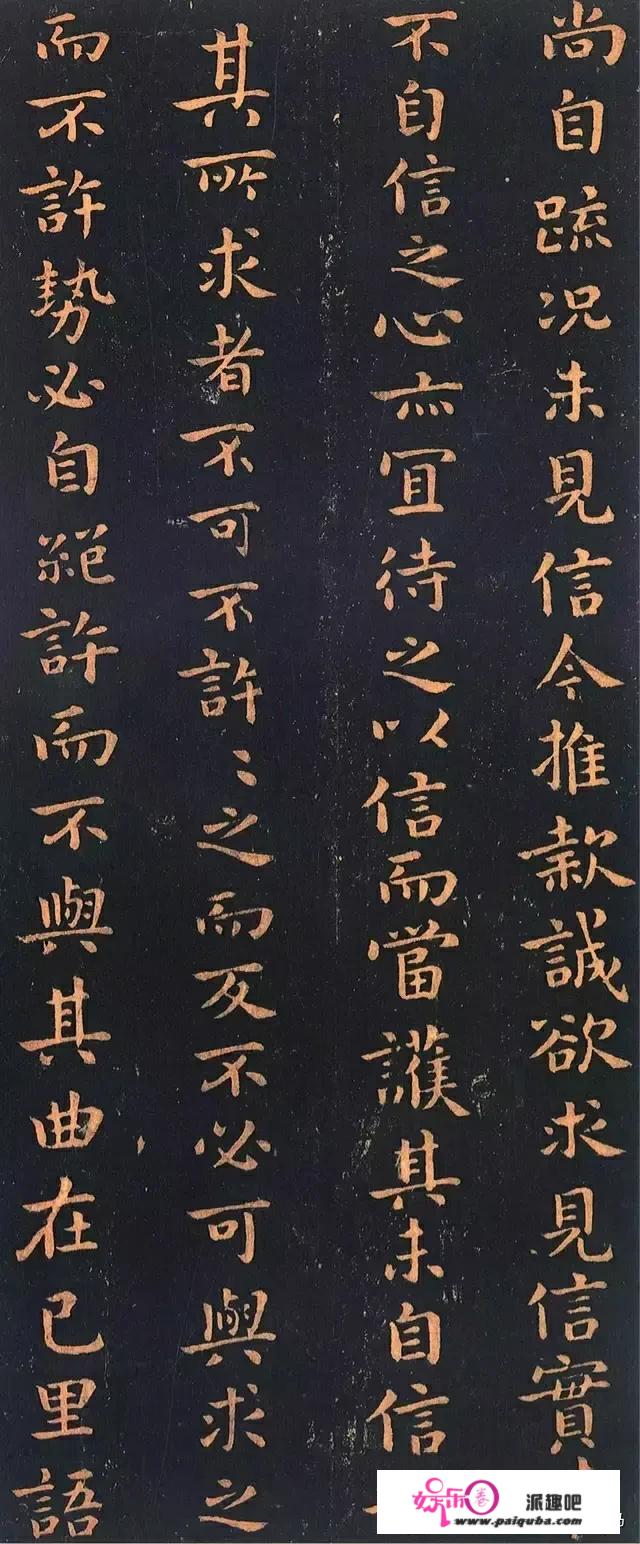 尚自疏况未見信今推款誠欲求見信實
不自信之心亦宜待之以信而當護其未自信
其所求者不可不許〻之而反不必可與求之
而不許勢必自絕許而不與其曲在己里語
娱乐圈 派趣吧
www.paiquba.com